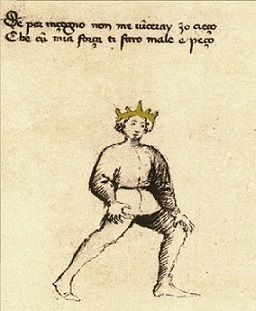 De per inçegno non me vinceray zo creço
Che cū mia força ti faro male e peço